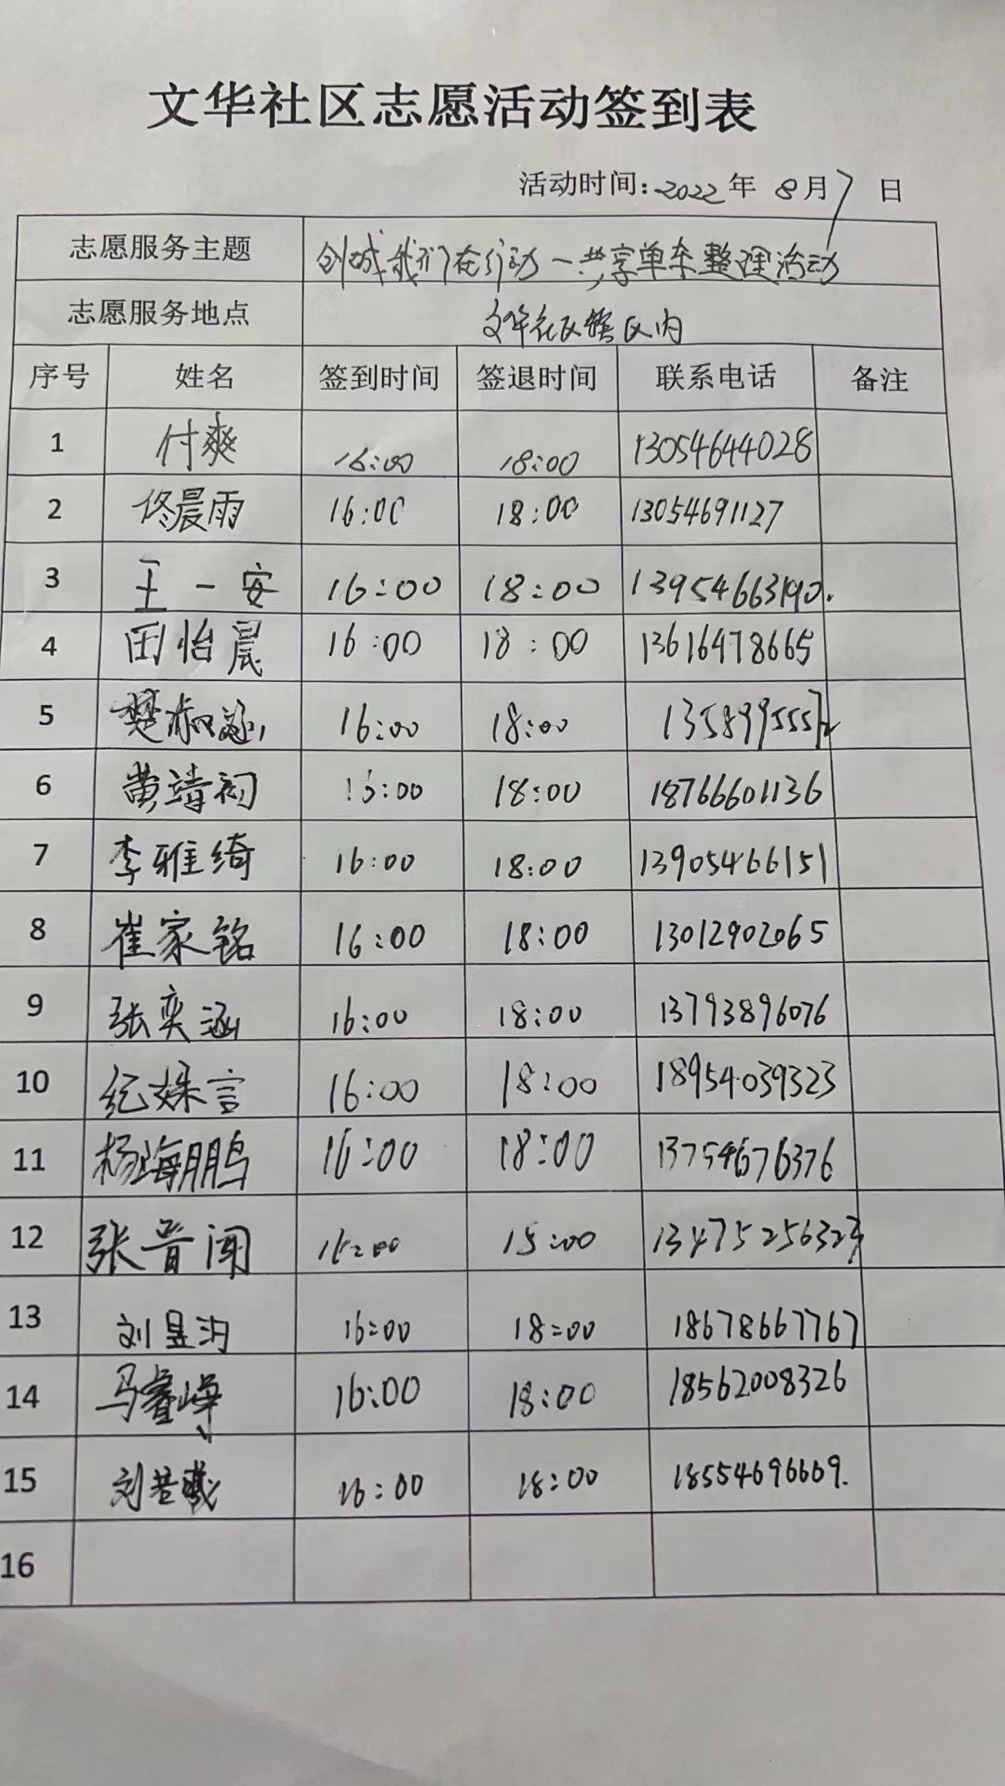 文华社区志愿活动签到表
活动时间:2022年 8月7日
志愿服务主题 创城我们在行动一共享单车整理活动
志愿服务地点 文华社区辖区内
序号 姓名 签到时间 签退时间 联系电话 备注
1 付爽 16:00 18:00 13054644028
2 佟晨雨 16:00 18:00 13054691127
3 王一安 16:00 18:00 13954663190.
4 田怡晨 16:00 18:00 13616478665
5 楚淑涵 16:00 18:00
6 黄靖初 16:00 18:00 18766601136
7 李雅绮 16:00 18:00 13905466151
8 崔家铭 16:00 18:00 13012902065
9 张奕涵 16:00 18:00 13793896076
10 纪姝言 16:00 18:00 18954039323
11 杨海鹏 16:00 18:00 13754676376
12 张晋闻 18:00
13 刘昱汐 16:00 18:00 18678667767
14 马睿峰 16:00 18:00 18562008326
15 刘若曦 16:00 18:00 18554696669.
16